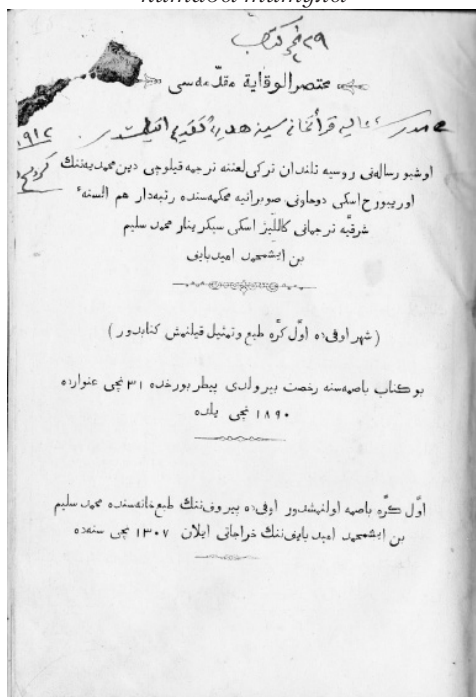 ٢٩ نچی کتاب
مختصر الوقایة مقدّمه‌سی
مدرسه عالیه
١٩١٢
اوشبو رساله‌نی روسیه تلندان ترکی لغتنه ترجمه قیلوچی دین محمدیه‌ننك
اورنبورح اسکی دوحاونی صوبرانیه محکمه‌سنده رتبه‌دار هم السنهٔ
شرقیّه ترجمانی کاللیژ اسکی سیکریتار محمد سلیم
بن ایشمحمد امیدبایف
(شهر اوفی‌ده اوّل کرّه طبع وتمثیل قیلنمش کتابدور)
بو کتاب باصمه‌سنه رخصت بیرولدی پیطربورخده ٣١ نچی عنوارده
١٨٩٠ نچی یلده
اوّل کرّه باصمه اولنمشدور اوفی‌ده پیروف‌ننك طبع خانه‌سنده محمد سلیم
بن ایشمحمد امیدبایف‌ننك خراجاتی ایلان ١٣٠٧ نچی سنه‌ده